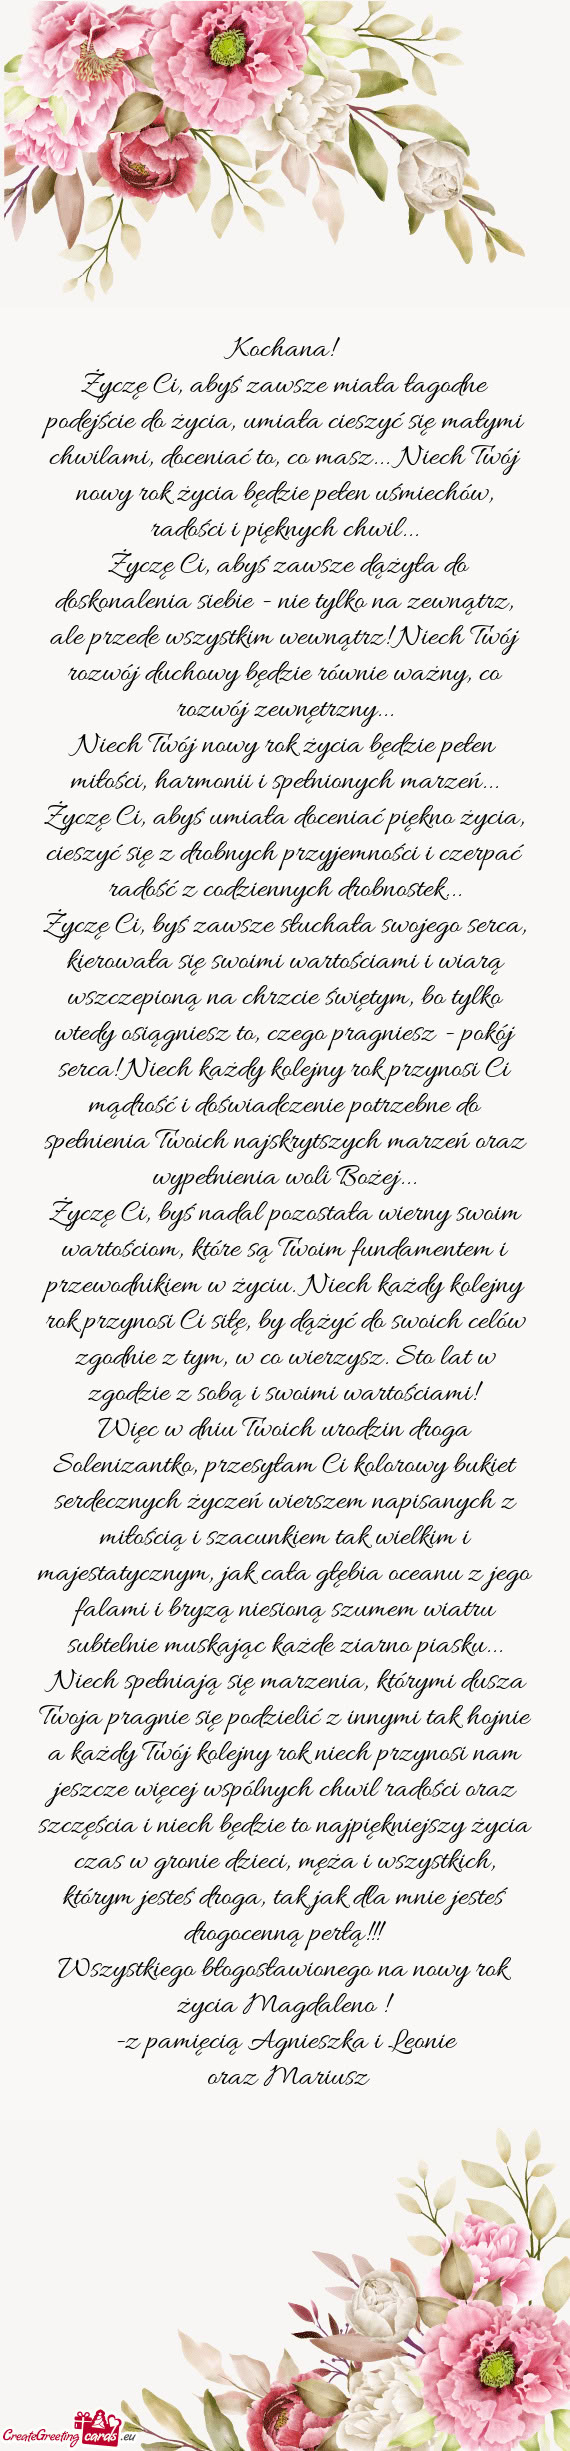 Kochana!
Życzę Ci, abyś zawsze miała łagodne
podejście do życia, umiała cieszyć się małymi
chwilami, doceniać to, co masz... Niech Twój
nowy rok życia będzie pełen uśmiechów,
radości i pięknych chwil...
Życzę Ci, abyś zawsze dążyła do
doskonalenia siebie - nie tylko na zewnątrz,
ale przede wszystkim wewnątrz! Niech Twój
rozwój duchowy będzie równie ważny, co
rozwój zewnętrzny...
Niech Twój nowy rok życia będzie pełen
miłości, harmonii i spełnionych marzeń...
Życzę Ci, abyś umiała doceniać piękno życia,
cieszyć się z drobnych przyjemności i czerpać
radość z codziennych drobnostek...
Życzę Ci, byś zawsze słuchała swojego serca,
kierowała się swoimi wartościami i wiarą
wszczepioną na chrzcie świętym, bo tylko
wtedy osiągniesz to, czego pragniesz - pokój
serca! Niech każdy kolejny rok przynosi Ci
mądrość i doświadczenie potrzebne do
spełnienia Twoich najskrytszych marzeń oraz
wypełnienia woli Bożej...
Życzę Ci, byś nadal pozostała wierny swoim
wartościom, które są Twoim fundamentem i
przewodnikiem w życiu. Niech każdy kolejny
rok przynosi Ci siłę, by dążyć do swoich celów
zgodnie z tym, w co wierzysz. Sto lat w
zgodzie z sobą i swoimi wartościami!
Więc w dniu Twoich urodzin droga
Solenizantko, przesyłam Ci kolorowy bukiet
serdecznych życzeń wierszem napisanych z
miłością i szacunkiem tak wielkim i
majestatycznym, jak cała głębia oceanu z jego
falami i bryzą niesioną szumem wiatru
subtelnie muskając każde ziarno piasku...
Niech spełniają się marzenia, którymi dusza
Twoja pragnie się podzielić z innymi tak hojnie
a każdy Twój kolejny rok niech przynosi nam
jeszcze więcej wspólnych chwil radości oraz
szczęścia i niech będzie to najpiękniejszy życia
czas w gronie dzieci, męża i wszystkich,
którym jesteś droga, tak jak dla mnie jesteś
drogocenną perłą!!!
Wszystkiego błogosławionego na nowy rok
życia Magdaleno !
-z pamięcią Agnieszka i Leonie
oraz Mariusz
CreateGreeting cards .eu